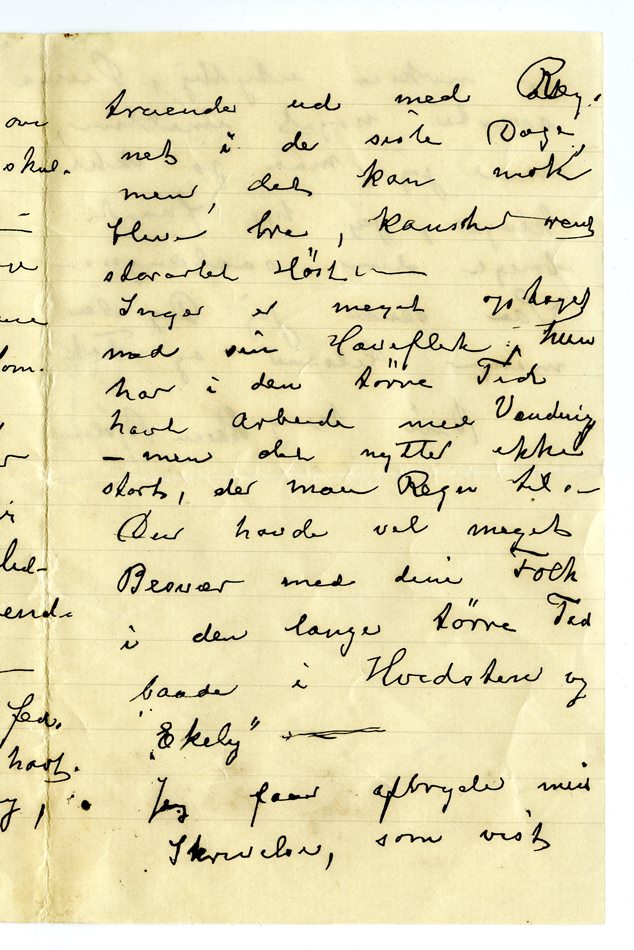 over
skul-
truende ud med Reg-
net i de siste Dage,
men, det kan nok
blive bra, kanske rent
storartet Høst —
Inger er meget optaget
med sin Haveflek, hun
har i den tørre Tid
havt Arbeide med Vanding
– men det nytter ikke
stort, der maa Regn til. –
Du havde vel meget
Besvær med dine Folk
i den lange tørre Tid
baade i Hvidsten og
"Ekely" —
Jeg faar afbryde min
Skrivelse, som vist
havt.